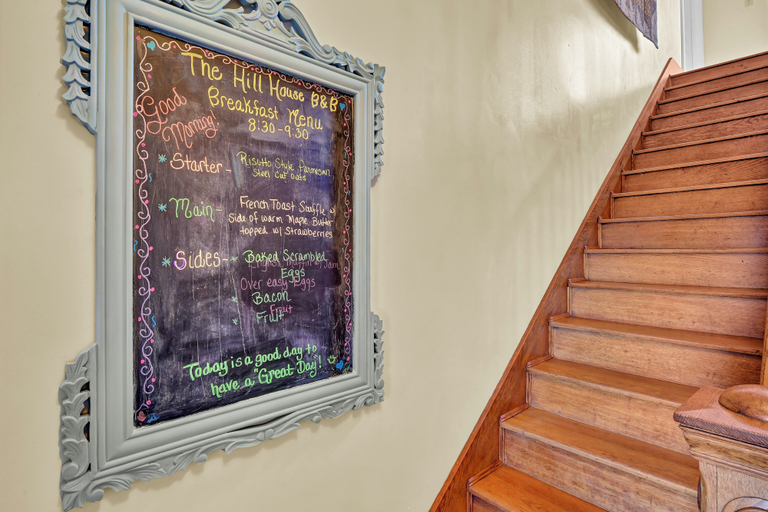 The Hill House B&B
Breakfast Menu
8:30-9:30
Good
Morning!
Starter - Risotto Style Parmesan
Steel cut oats
Main - French Toast Souffle w/
side of warm Maple Butter
topped w/ strawberries
Sides - Baked Scrambled
English muffin w/ Jam
Eggs
Over easy Eggs
Bacon
Fruit
Fruit
Today is a good day to
have a "Great Day"!